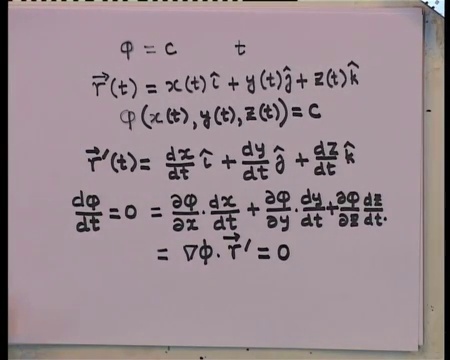 φ = c t
r⃗(t) = x(t) î + y(t) ĵ + z(t) k̂
φ(x(t), y(t), z(t)) = c
r⃗'(t) = dx/dt î + dy/dt ĵ + dz/dt k̂
dφ/dt = 0 = ∂φ/∂x · dx/dt + ∂φ/∂y · dy/dt + ∂φ/∂z dz/dt.
= ∇φ · r⃗' = 0